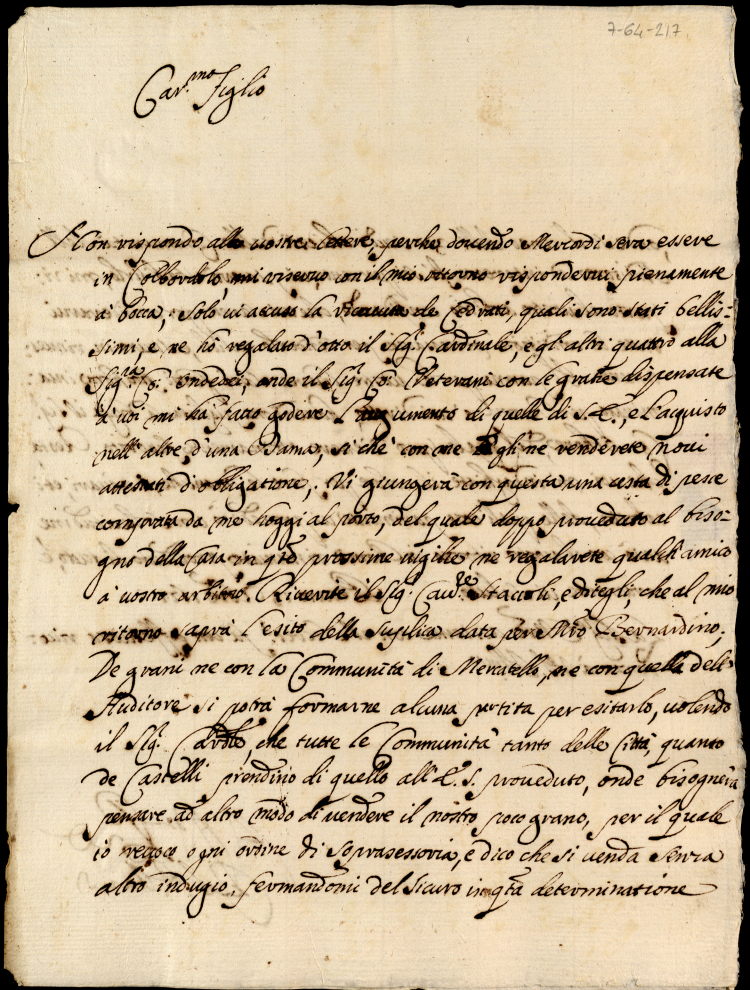 7-64-217
Car.mo Figlio
Non rispondo alle vostre lettere, perche dovendo Mercordi sera essere
in Colbordolo, mi riservo con il mio ritorno rispondervi pienamente
a bocca; Solo vi accuso la ricevuta de Cedrati, quali sono stati bellis=
simi, e ne hò regalato d'otto il Sig.r Cardinale, e gl'altri quattro alla
Sig.ra Co: Ondedei, onde il Sig.r Co: Veterani con le gratie dispensate
à voi mi ha fatto godere l'augumento di quelle di S.E., e l'acquisto
nell'altre d'una Dama, si che con me gli ne renderete novi
attestati d'obligatione. Vi giungerà con questa una cesta di pesce
comprata da me hoggi al porto, del quale doppo proveduto al biso=
gno della Casa in q.te prossime vigilie ne regalarete qualch'amico
à vostro arbitrio. Riverite il Sig.r Cav.re Staccoli, e ditegli, che al mio
ritorno saprà l'esito della suplica data per M.ro Bernardino;
De grani ne con la Communità di Mercatello, ne con quella dell'
Auditore si potrà formarne alcuna partita per esitarlo, volendo
il Sig.r Cardle, che tutte le Communità tanto delle Città, quanto
de Castelli prendino di quello all'E.S. proveduto, onde bisognerà
pensare ad altro modo di vendere il nostro poco grano, per il quale
io revoco ogni ordine di soprasessoria, e dico che si venda senza
altro indugio, fermandomi del sicuro in q.ta determinatione